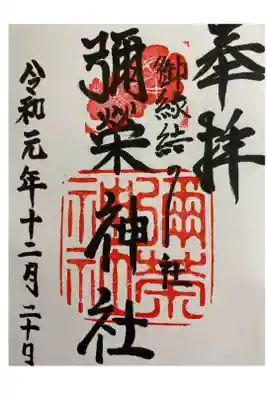 奉拝
御縁結ノ社
彌榮神社
彌榮神社
令和元年十二月二十日